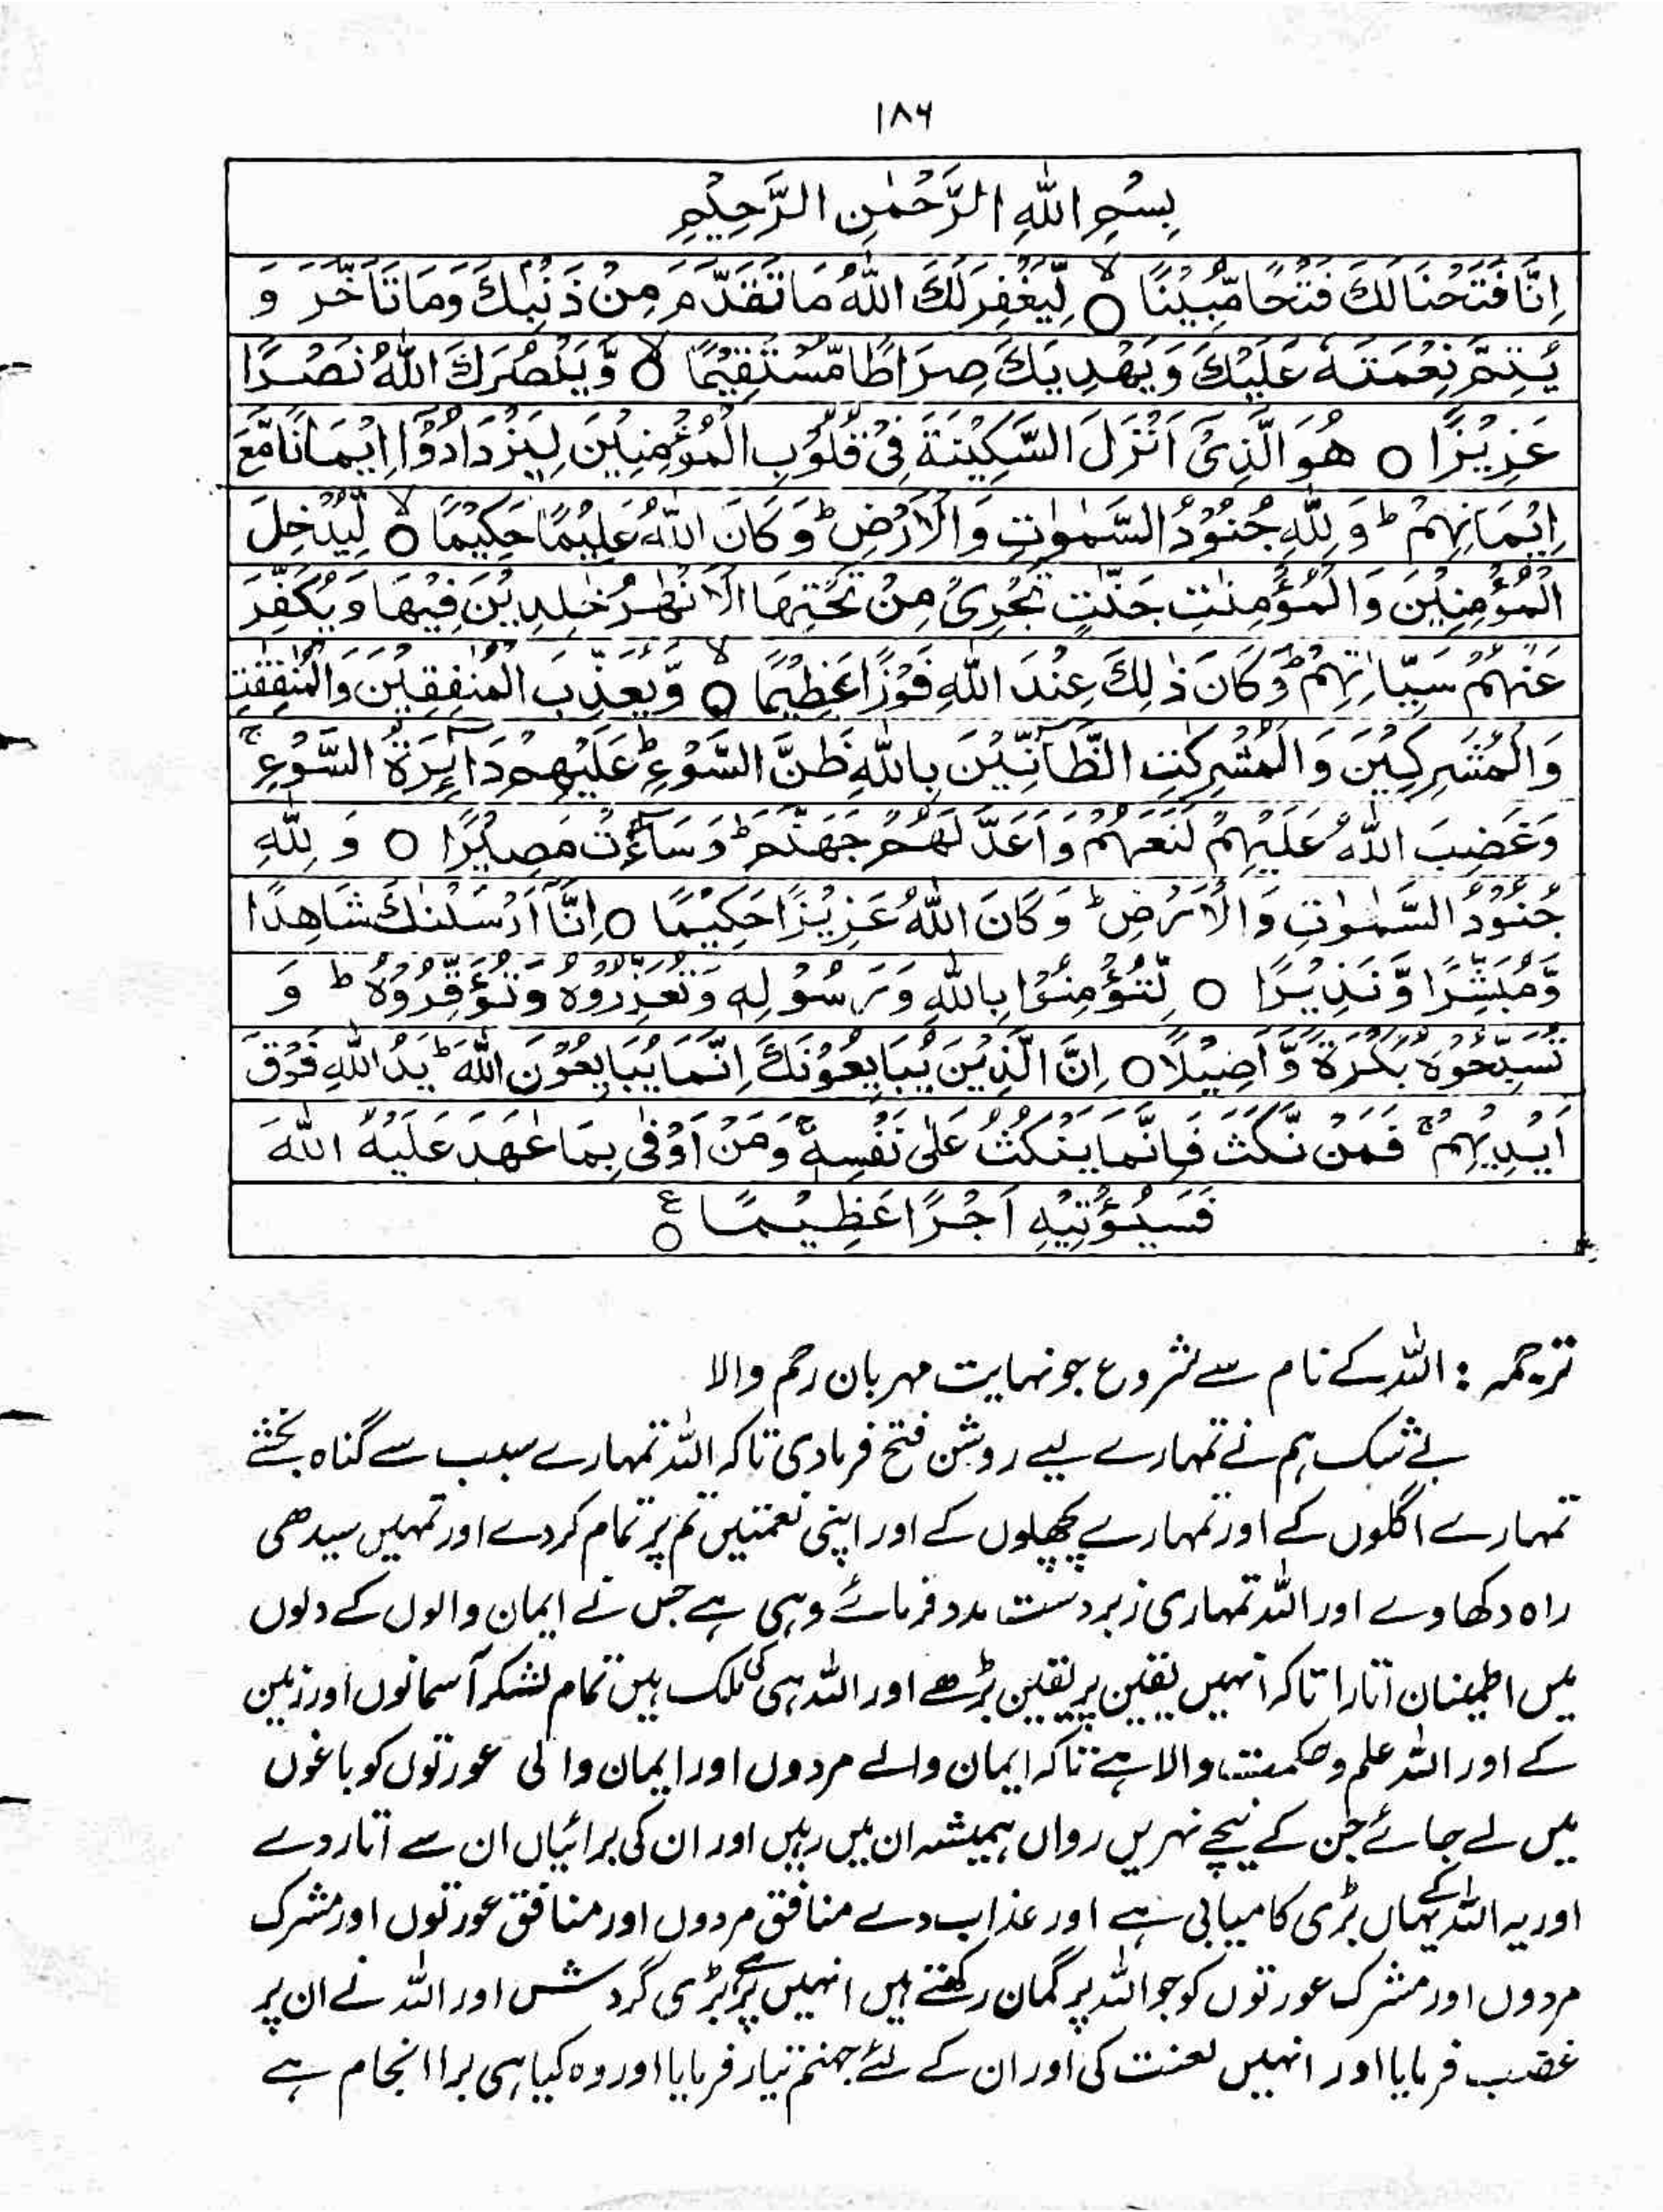 ۱۸۶
بِسْمِ اللّٰهِ الرَّحْمٰنِ الرَّحِیْمِ
اِنَّا فَتَحْنَا لَكَ فَتْحًا مُّبِیْنًا ۙ○ لِّیَغْفِرَ لَكَ اللّٰهُ مَا تَقَدَّمَ مِنْ ذَنْۢبِكَ وَمَا تَاَخَّرَ وَ
یُتِمَّ نِعْمَتَهٗ عَلَیْكَ وَیَهْدِیَكَ صِرَاطًا مُّسْتَقِیْمًا ۙ○ وَّیَنْصُرَكَ اللّٰهُ نَصْرًا
عَزِیْزًا ○ هُوَ الَّذِیْۤ اَنْزَلَ السَّكِیْنَةَ فِیْ قُلُوْبِ الْمُؤْمِنِیْنَ لِیَزْدَادُوْۤا اِیْمَانًا مَّعَ
اِیْمَانِهِمْ ؕ وَلِلّٰهِ جُنُوْدُ السَّمٰوٰتِ وَالْاَرْضِ ؕ وَكَانَ اللّٰهُ عَلِیْمًا حَكِیْمًا ۙ○ لِّیُدْخِلَ
الْمُؤْمِنِیْنَ وَالْمُؤْمِنٰتِ جَنّٰتٍ تَجْرِیْ مِنْ تَحْتِهَا الْاَنْهٰرُ خٰلِدِیْنَ فِیْهَا وَیُكَفِّرَ
عَنْهُمْ سَیِّاٰتِهِمْ ؕ وَكَانَ ذٰلِكَ عِنْدَ اللّٰهِ فَوْزًا عَظِیْمًا ۙ○ وَّیُعَذِّبَ الْمُنٰفِقِیْنَ وَالْمُنٰفِقٰتِ
وَالْمُشْرِكِیْنَ وَالْمُشْرِكٰتِ الظَّآنِّیْنَ بِاللّٰهِ ظَنَّ السَّوْءِ ؕ عَلَیْهِمْ دَآىِٕرَةُ السَّوْءِ ۚ
وَغَضِبَ اللّٰهُ عَلَیْهِمْ لَعَنَهُمْ وَاَعَدَّ لَهُمْ جَهَنَّمَ ؕ وَسَآءَتْ مَصِیْرًا ○ وَلِلّٰهِ
جُنُوْدُ السَّمٰوٰتِ وَالْاَرْضِ ؕ وَكَانَ اللّٰهُ عَزِیْزًا حَكِیْمًا ○ اِنَّاۤ اَرْسَلْنٰكَ شَاهِدًا
وَّمُبَشِّرًا وَّنَذِیْرًا ○ لِّتُؤْمِنُوْا بِاللّٰهِ وَرَسُوْلِهٖ وَتُعَزِّرُوْهُ وَتُوَقِّرُوْهُ ؕ وَ
تُسَبِّحُوْهُ بُكْرَةً وَّاَصِیْلًا ○ اِنَّ الَّذِیْنَ یُبَایِعُوْنَكَ اِنَّمَا یُبَایِعُوْنَ اللّٰهَ ؕ یَدُ اللّٰهِ فَوْقَ
اَیْدِیْهِمْ ۚ فَمَنْ نَّكَثَ فَاِنَّمَا یَنْكُثُ عَلٰی نَفْسِهٖ ۚ وَمَنْ اَوْفٰی بِمَا عٰهَدَ عَلَیْهُ اللّٰهَ
فَسَیُؤْتِیْهِ اَجْرًا عَظِیْمًا ○ ع
ترجمہ : اللہ کے نام سے شروع جو نہایت مہربان رحم والا
بے شک ہم نے تمہارے لیے روشن فتح فرمادی تاکہ اللہ تمہارے سبب سے گناہ بخشے
تمہارے اگلوں کے اور تمہارے پچھلوں کے اور اپنی نعمتیں تم پر تمام کردے اور تمہیں سیدھی
راہ دکھاوے اور اللہ تمہاری زبردست مدد فرمائے وہی ہے جس نے ایمان والوں کے دلوں
میں اطمینان اتارا تاکہ انہیں یقین پر یقین بڑھے اور اللہ ہی کی ملک ہیں تمام لشکر آسمانوں اور زمین
کے اور اللہ علم و حکمت والا ہے تاکہ ایمان والے مردوں اور ایمان والی عورتوں کو باغوں
میں لے جائے جن کے نیچے نہریں رواں ہمیشہ ان میں رہیں اور ان کی برائیاں ان سے اتار دے
اور یہ اللہ کے یہاں بڑی کامیابی ہے اور عذاب دے منافق مردوں اور منافق عورتوں اور مشرک
مردوں اور مشرک عورتوں کو جو اللہ پر گمان رکھتے ہیں انہیں پر ہے بڑی گردش اور اللہ نے ان پر
غضب فرمایا اور انہیں لعنت کی اور ان کے لئے جہنم تیار فرمایا اور وہ کیا ہی برا انجام ہے